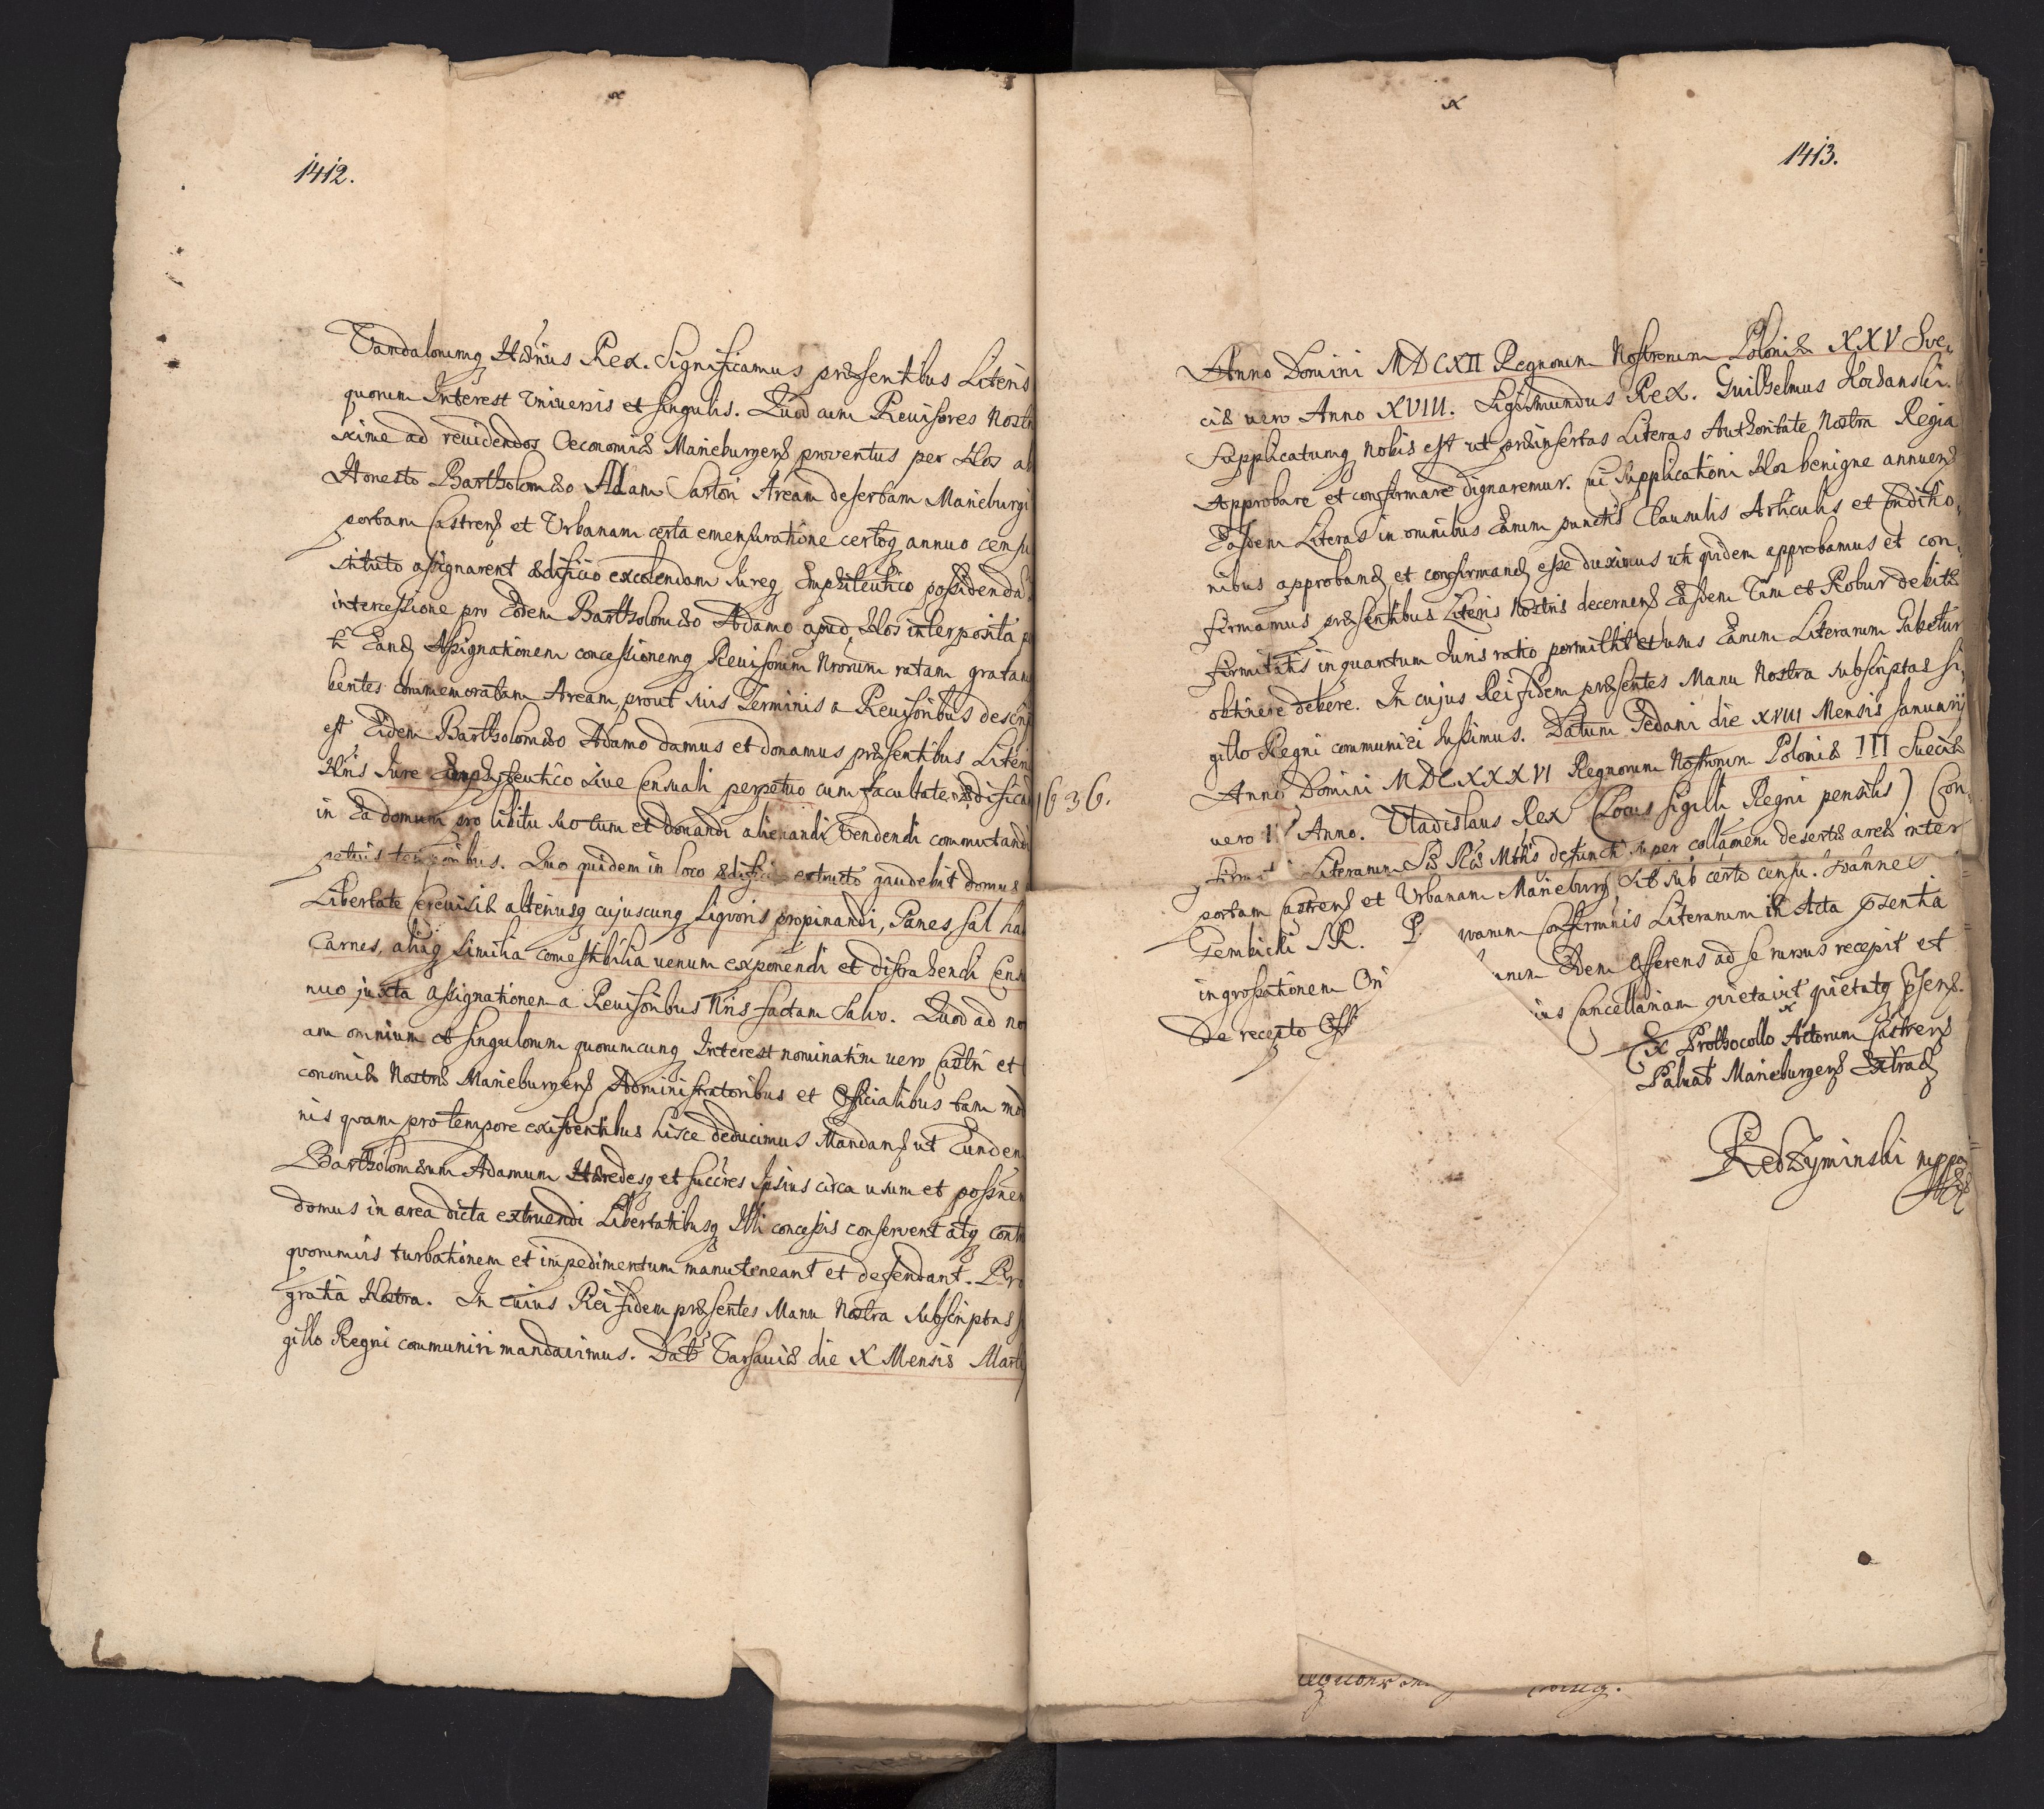 1412.
Vandalorumq Hærius Rex. Significamus præsentibus Literis
quorum Interest Universis et singulis. Quod cum Revisores Nostri
xime ad revidendos Oeconomiæ Marieburgens proventus per Nos ab
Honesto Bartholomæo Adam Sartori Aream desertam Marieburgi
portam Castrens et Urbanam certa emensuratione certoq annuo censu
stituto assignarent ædificio excolendam Jureq Emphiteutico possidenda
intercessione pro Eodem Bartholomæo Adamo apud Nos interposita
Eand Assignationem concessionemq Revisorum Nrorum ratam gratam
bentes commemoratam Aream, prout suis Terminis a Revisoribus descrip
est Eidem Bartholomæo Adamo damus et donamus præsentibus Literis
Nris Jure Emphiteutico sive Censuali perpetuo cum facultate ædifican
in Ea domum pro libitu suo tum et donandi alienandi Vendendi commutandi
petuis temporibus. Quo quidem in loco ædificio extructo gaudebit domus
Libertate Cerevisiæ alteriusq cujuscunq Liquoris propinandi, Panes, sal ha
Carnes, aliaq similia comestibilia venum exponendi et distrahendi Cens
nuo juxta assignationem a Revisoribus Nris factam salvo. Quod ad no
am omnium et singulorum quorumcunq Interest nominatim vero Castri et
conomiæ Nostræ Marieburgens Administratoribus et Officialibus tam mod
nis quam pro tempore existentibus hisce deducimus Mandans ut Eundem
Bartholomæum Adamum Hæredesq et succres Ipsius circa usum et possnem
domus in area dicta extruendi Libertatibusq Illi concessis conservent atq contra
quorumvis turbationem et impedimentum manuteneant et defendant. Pro
gratia Nostra. In cuius Rei fidem præsentes Manu Nostra subscriptas s
gillo Regni communiri mandavimus. Dat Varsaviæ die X Mensis Martij
1413.
Anno Domini MDCXII Regnorum Nostrorum Poloniæ XXV Sve,
ciæ vero Anno XVIII. Sigismundus Rex. Guilhelmus Kochanski.
Supplicatumq nobis est ut præinsertas Literas Authoritate Nostra Regia
Approbare et confirmare dignaremur. Cui supplicationi Nos benigne annuens
Easdem Literas in omnibus Earum punctis Clausulis Articulis et Conditio,
nibus approband et confirmand esse duximus uti quidem approbamus et con,
firmamus præsentibus Literis Nostris decernens Easdem Vim et Robur debitæ
firmitatis inquantum Juris ratio permittit et usus Earum Literarum habetur
obtinere debere. In cujus Rei fidem præsentes Manu Nostra subscriptas si,
gillo Regni communici Jussimus. Datum Gedani die XVIII Mensis Januarij
1636. Anno Domini MDCXXXVI Regnorum Nostrorum Poloniæ III Sueciæ
vero Anno. Vladislaus Rex (Locus sigilli Regni pensilis) Con,
Literarum Sæ Ræ Mtis defuncti super collaonem desertæ areæ inter
portam Castrens et Urbanam Marieburg sit sub certo censu. Joannes
Gembicki S.R. P varum Confirmnis Literarum in Acta præsentia
ingrossationem Ori Idem offerens ad se rursus recepit et
De recepto Offi ius Cancellariam quietavit quietatq præsens.
Ex Prothocollo Actorum Castrens
Palnat Marieburgens Extrad
Redzyminski mppa